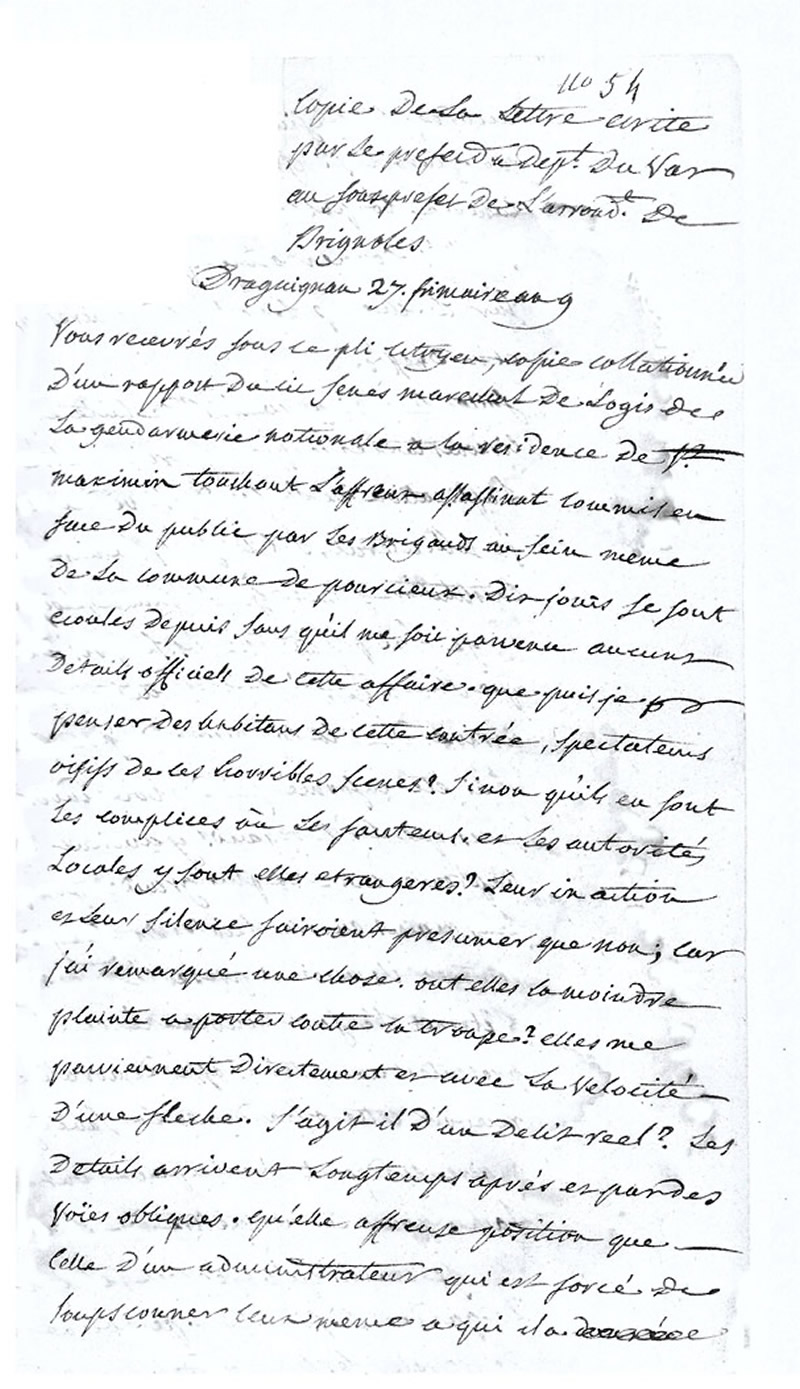 no 54
Copie De La Lettre ecrite
par Le prefet Du Dept. Du Var
au sousprefet De L'arrondt. De
Brignoles
Draguignan 27. frimaire an 9
Vous recevrés sous ce pli citoyen, copie collationnée
D'un rapport Du cit Senés marechal De Logis De
La gendarmerie nationale a la residence De St
maximin touchant L'affreux assassinat commis en
face Du public par Les Brigands au sein meme
De La commune De pourcieux. Dix jours se sont
ecoules Depuis sans qu'il me soit parvenu aucuns
Details officiels De cette affaire. que puis je
penser Des habitans De cette contrée, spectateurs
oisifs De ces horribles scenes? Sinon qu'ils en sont
Les complices ou Les fauteurs. et Les autorités
Locales y sont elles etrangeres? Leur in action
et Leur silence fairoient presumer que non; car
j'ai remarqué une chose. ont elles la moindre
plainte a porter contre la troupe? elles me
parviennent Directement et avec La Velocité
D'une fleche. S'agit il D'un Delit reel? Les
Details arrivent Longtemps aprés et par des
Voïes obliques. qu'elle affreuse position que
Celle D'un administrateur qui est forcé De
soupsconner ceux meme a qui il a